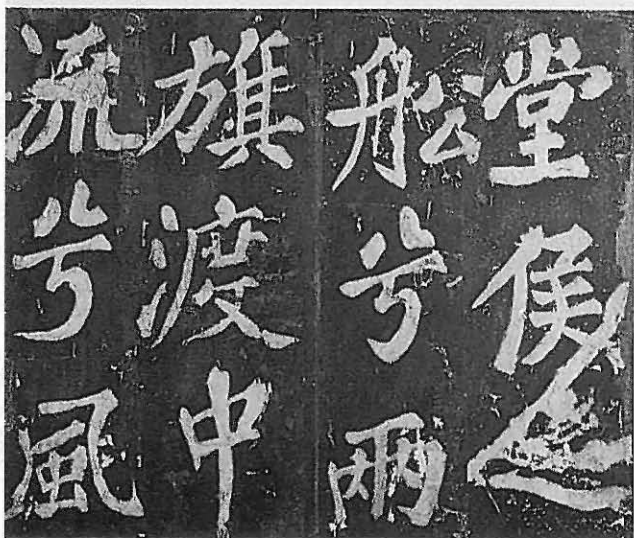 堂侯之
舩兮兩
旗渡中
流兮風